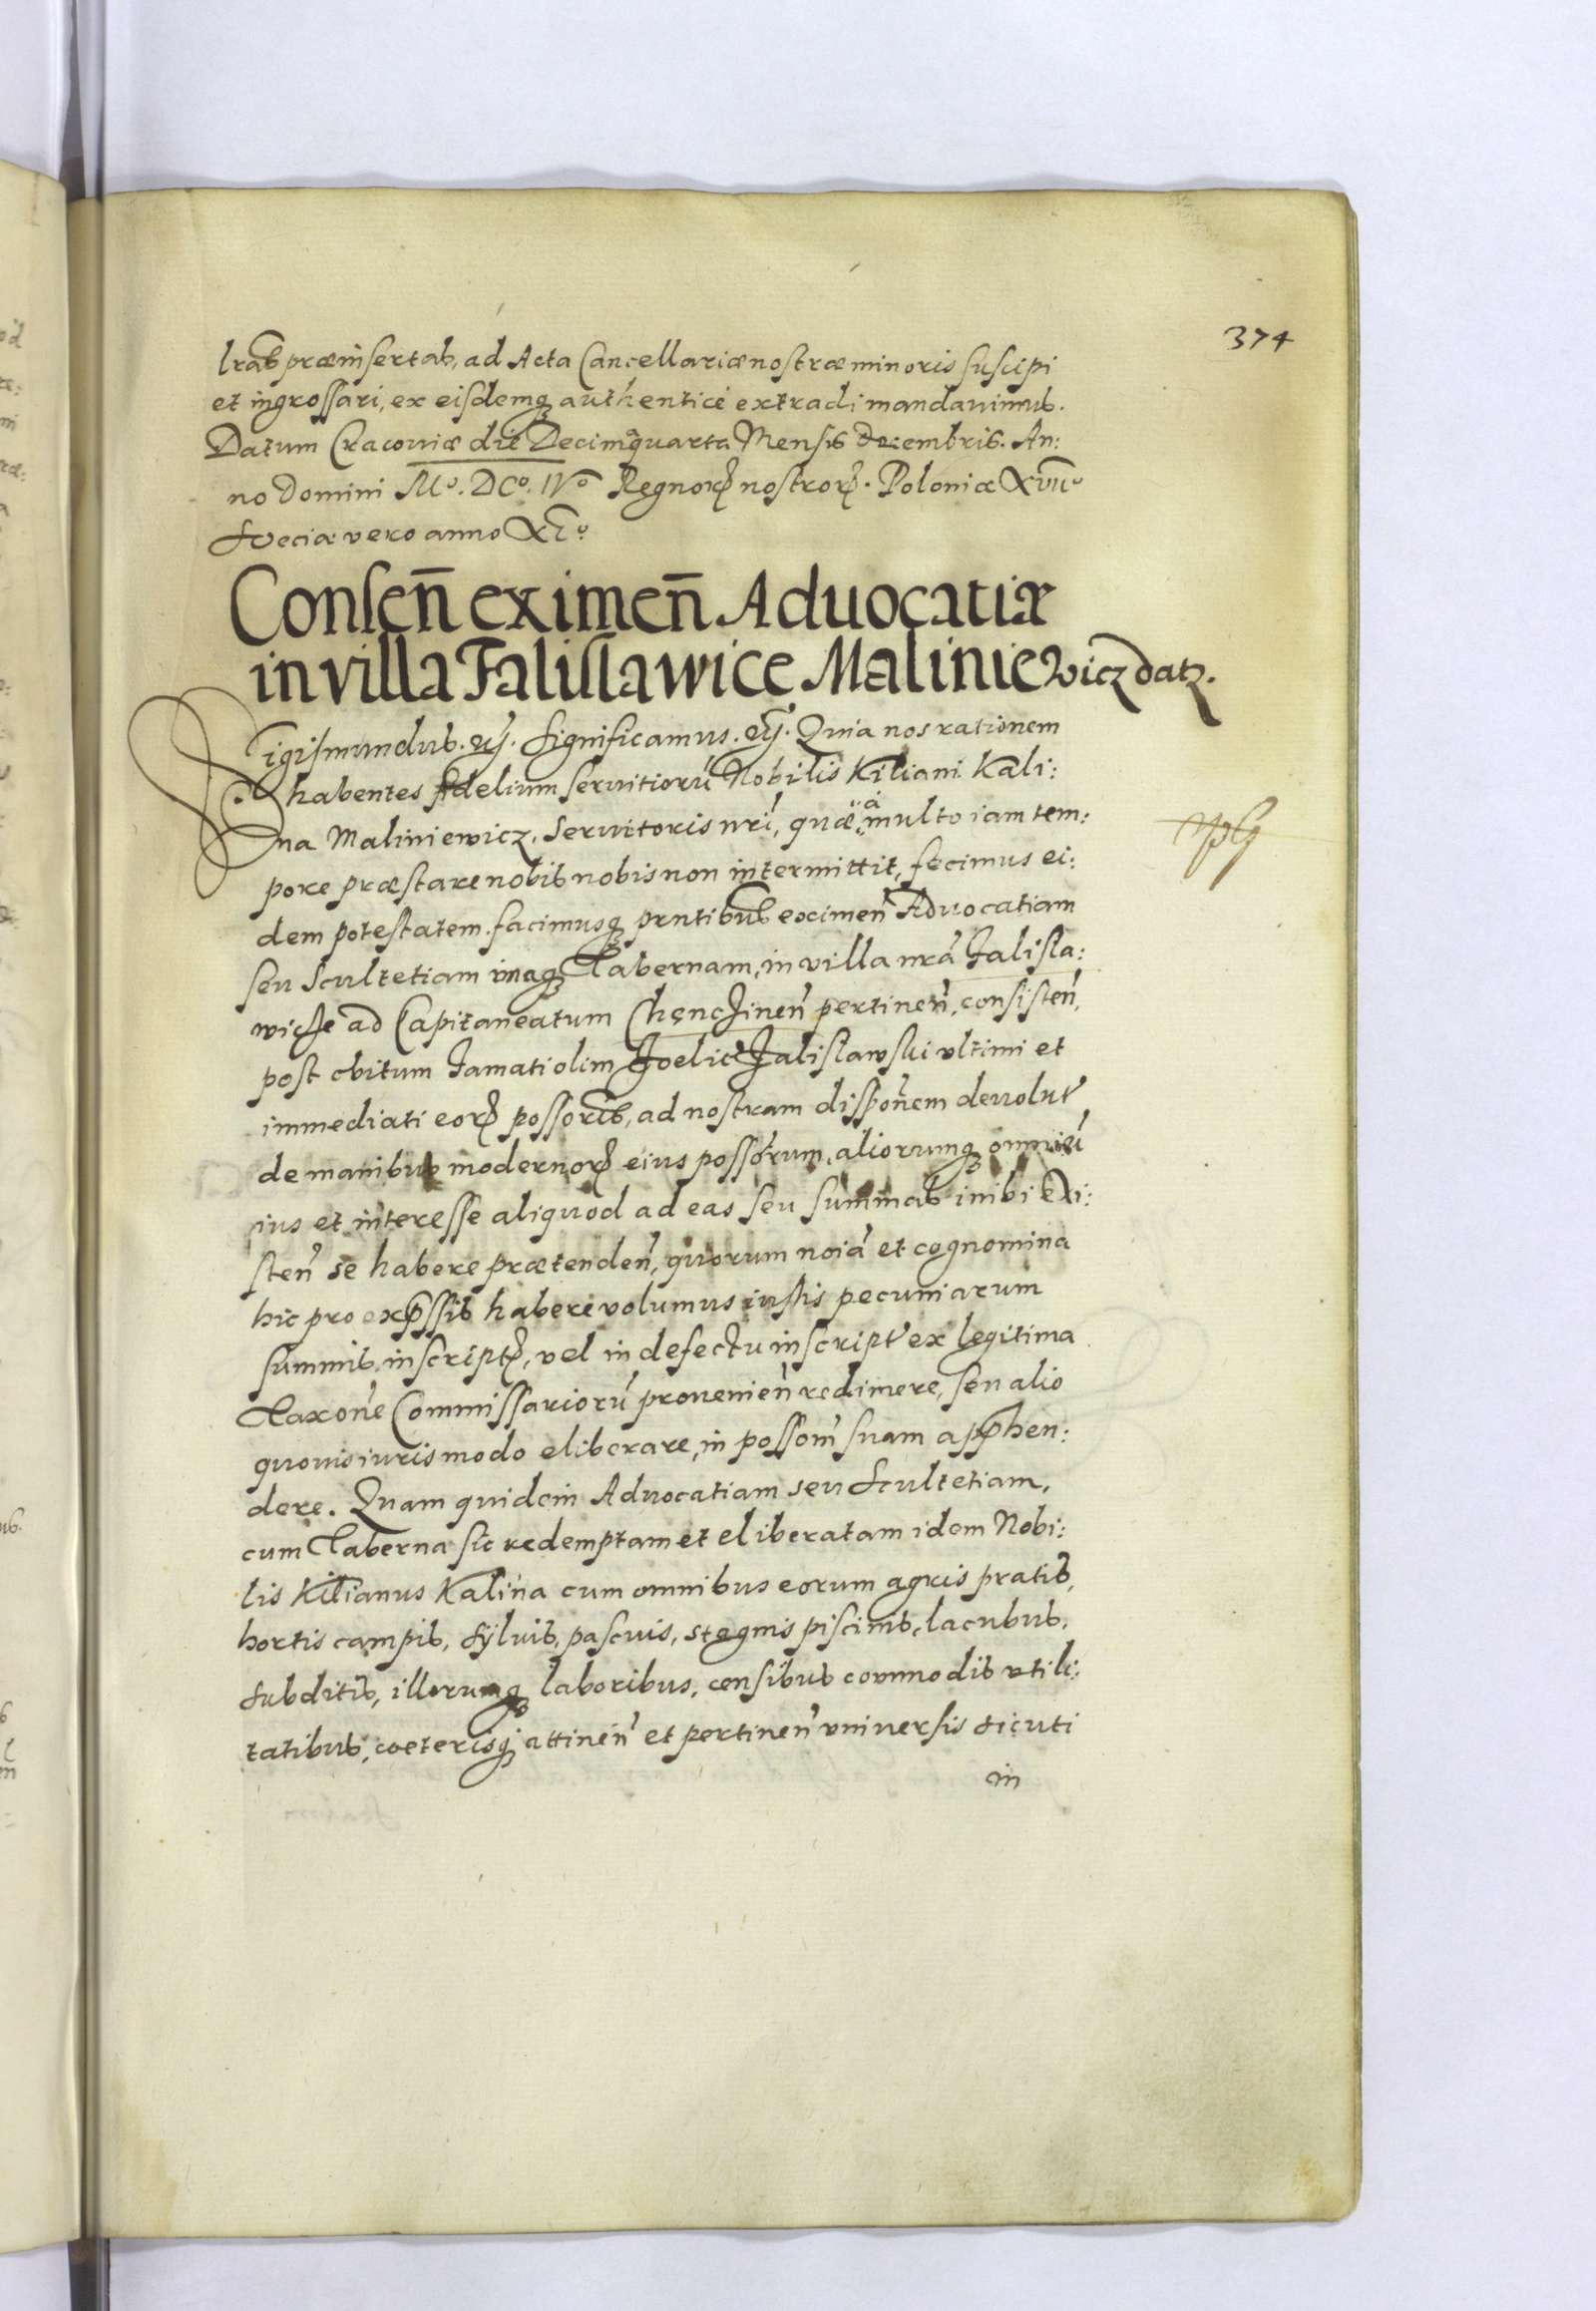 374
lrās præinsertas, ad Acta Cancellariæ nostræ minoris suscipi
et ingrossari, ex eisdemq₃ authenticè extradi mandavimus.
Datum Cracoviæ die Decimaquarta Mensis Decembris. An:
no Domini Mº. DCº. IVº Regnorꝝ nostrorꝝ. Poloniæ XVIIº
Sveciæ vero anno XIº.
Consen̄ eximen̄ Aduocatiæ
in villa Falislawice Maliniewicz datꝫ.
Sigismundus. ꝛꝯ. Significamus. ꝛꝯ. Quia nos rationem
habentes fidelium servitiorū Nobilis Kiliani Kali:
na Maliniewicz, Servitoris nr̄i, quæ à multo iam tem:
pore præstare nobis nobis non intermittit, fecimus ei:
dem potestatem. facimusq₃ pr̄ntibus eximen̄ Advocatiam
seu Scultetiam unaq₃ Tabernam, in villa nrā Falisla:
wicze ad Capitaneatum Chęncinen̄ pertinen̄, consisten̄,
post obitum famati olim Foelicis Falislawski ultimi et
immediati eorꝝ possoris, ad nostram dispōnem devolut̄
de manibus modernorꝝ eius possorum, aliorumq₃ omniū
ius et interesse aliquod ad eas seu summas inibi exi:
sten̄ se habere prætenden̄, quorum noīa et cognomina
hic pro exp̄ssis habere volumus iustis pecuniarum
summis inscriptꝭ, vel in defectu inscript̄ ex legitima
Taxōne Commissariorū provenien̄ redimere, seu alio
quovis iuris modo eliberare, in possoīn suam app̄hen:
dere. Quam quidem Advocatiam seu Scultetiam,
cum Taberna sic redemptam et eliberatam idem Nobi:
lis Kilianus Kalina cum omnibus eorum agris pratis,
hortis campis, sylvis, pascuis, stagnis piscinis, lacubus,
subditis, illorumq₃ laboribus, censibus commodis utili:
tatibus, cœterisq₃ attinen̄ et pertinen̄ universis sicuti
in